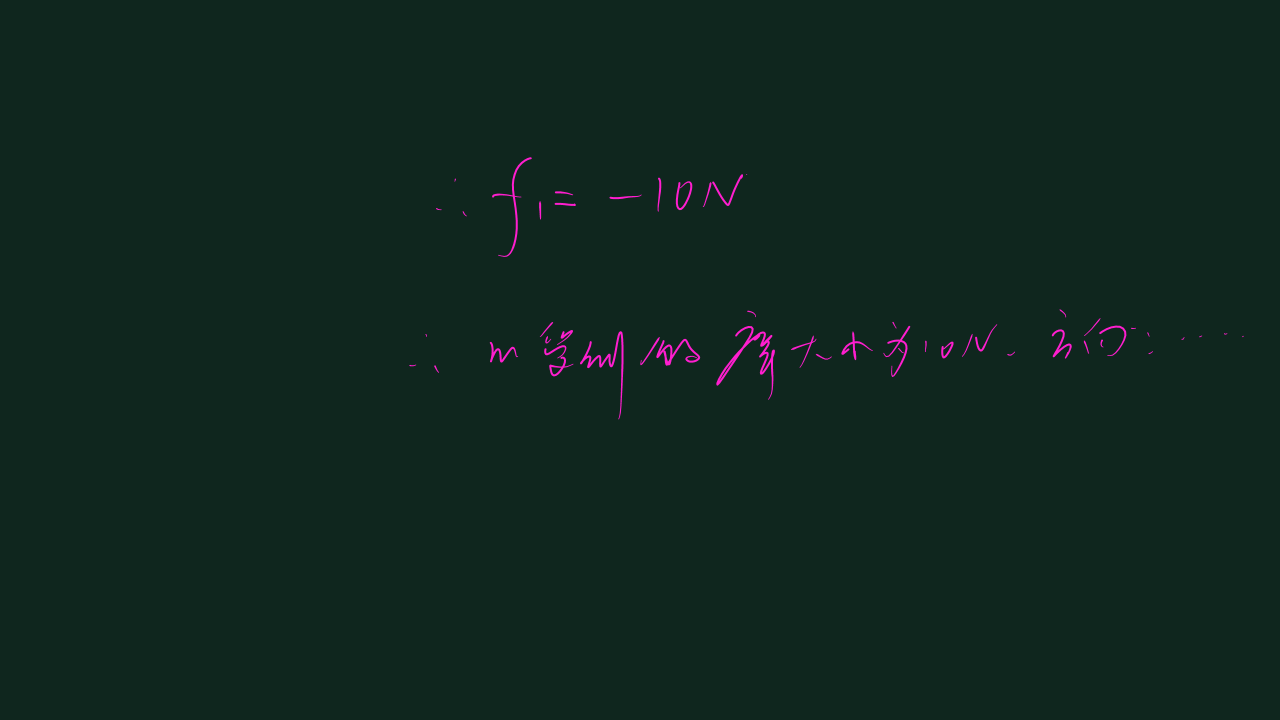 ∴ f₁ = -10N
∴ m受到的摩大小为10N. 方向: ......